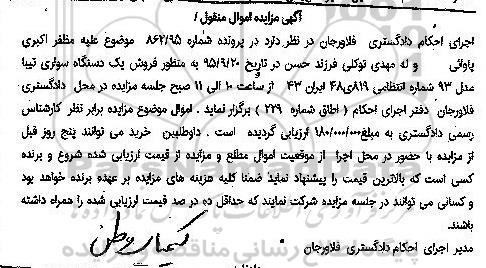 آگهی مزایده اموال منقول /
اجرای احکام دادگستری فلاورجان در نظر دارد در پرونده شماره ۸۶۲/۹۵ موضوع علیه مظفر اکبری
پاوائی و له مهدی توکلی فرزند حسن در تاریخ ۹۵/۹/۲۰ به منظور فروش یک دستگاه سواری تیبا
مدل ۹۳ شماره انتظامی ۸۱۹ی۴۸ ایران ۴۳ از ساعت ۱۰ الی ۱۱ صبح جلسه مزایده در محل دادگستری
فلاورجان دفتر اجرای احکام ( اطاق شماره ۲۲۹ ) برگزار نماید . اموال موضوع مزایده برابر نظر کارشناس
رسمی دادگستری به مبلغ ۱۸۰/۰۰۰/۰۰۰ ارزیابی گردیده است . داوطلبین خرید می توانند پنج روز قبل
از مزایده با حضور در محل اجرا از موقعیت اموال مطلع و مزایده از قیمت ارزیابی شده شروع و برنده
کسی است که بالاترین قیمت را پیشنهاد نماید ضمنا کلیه هزینه های مزایده بر عهده برنده خواهد بود
و کسانی می توانند در جلسه مزایده شرکت نمایند که حداقل ده در صد قیمت ارزیابی شده را همراه داشته
باشند.
مدیر اجرای احکام دادگستری فلاورجان